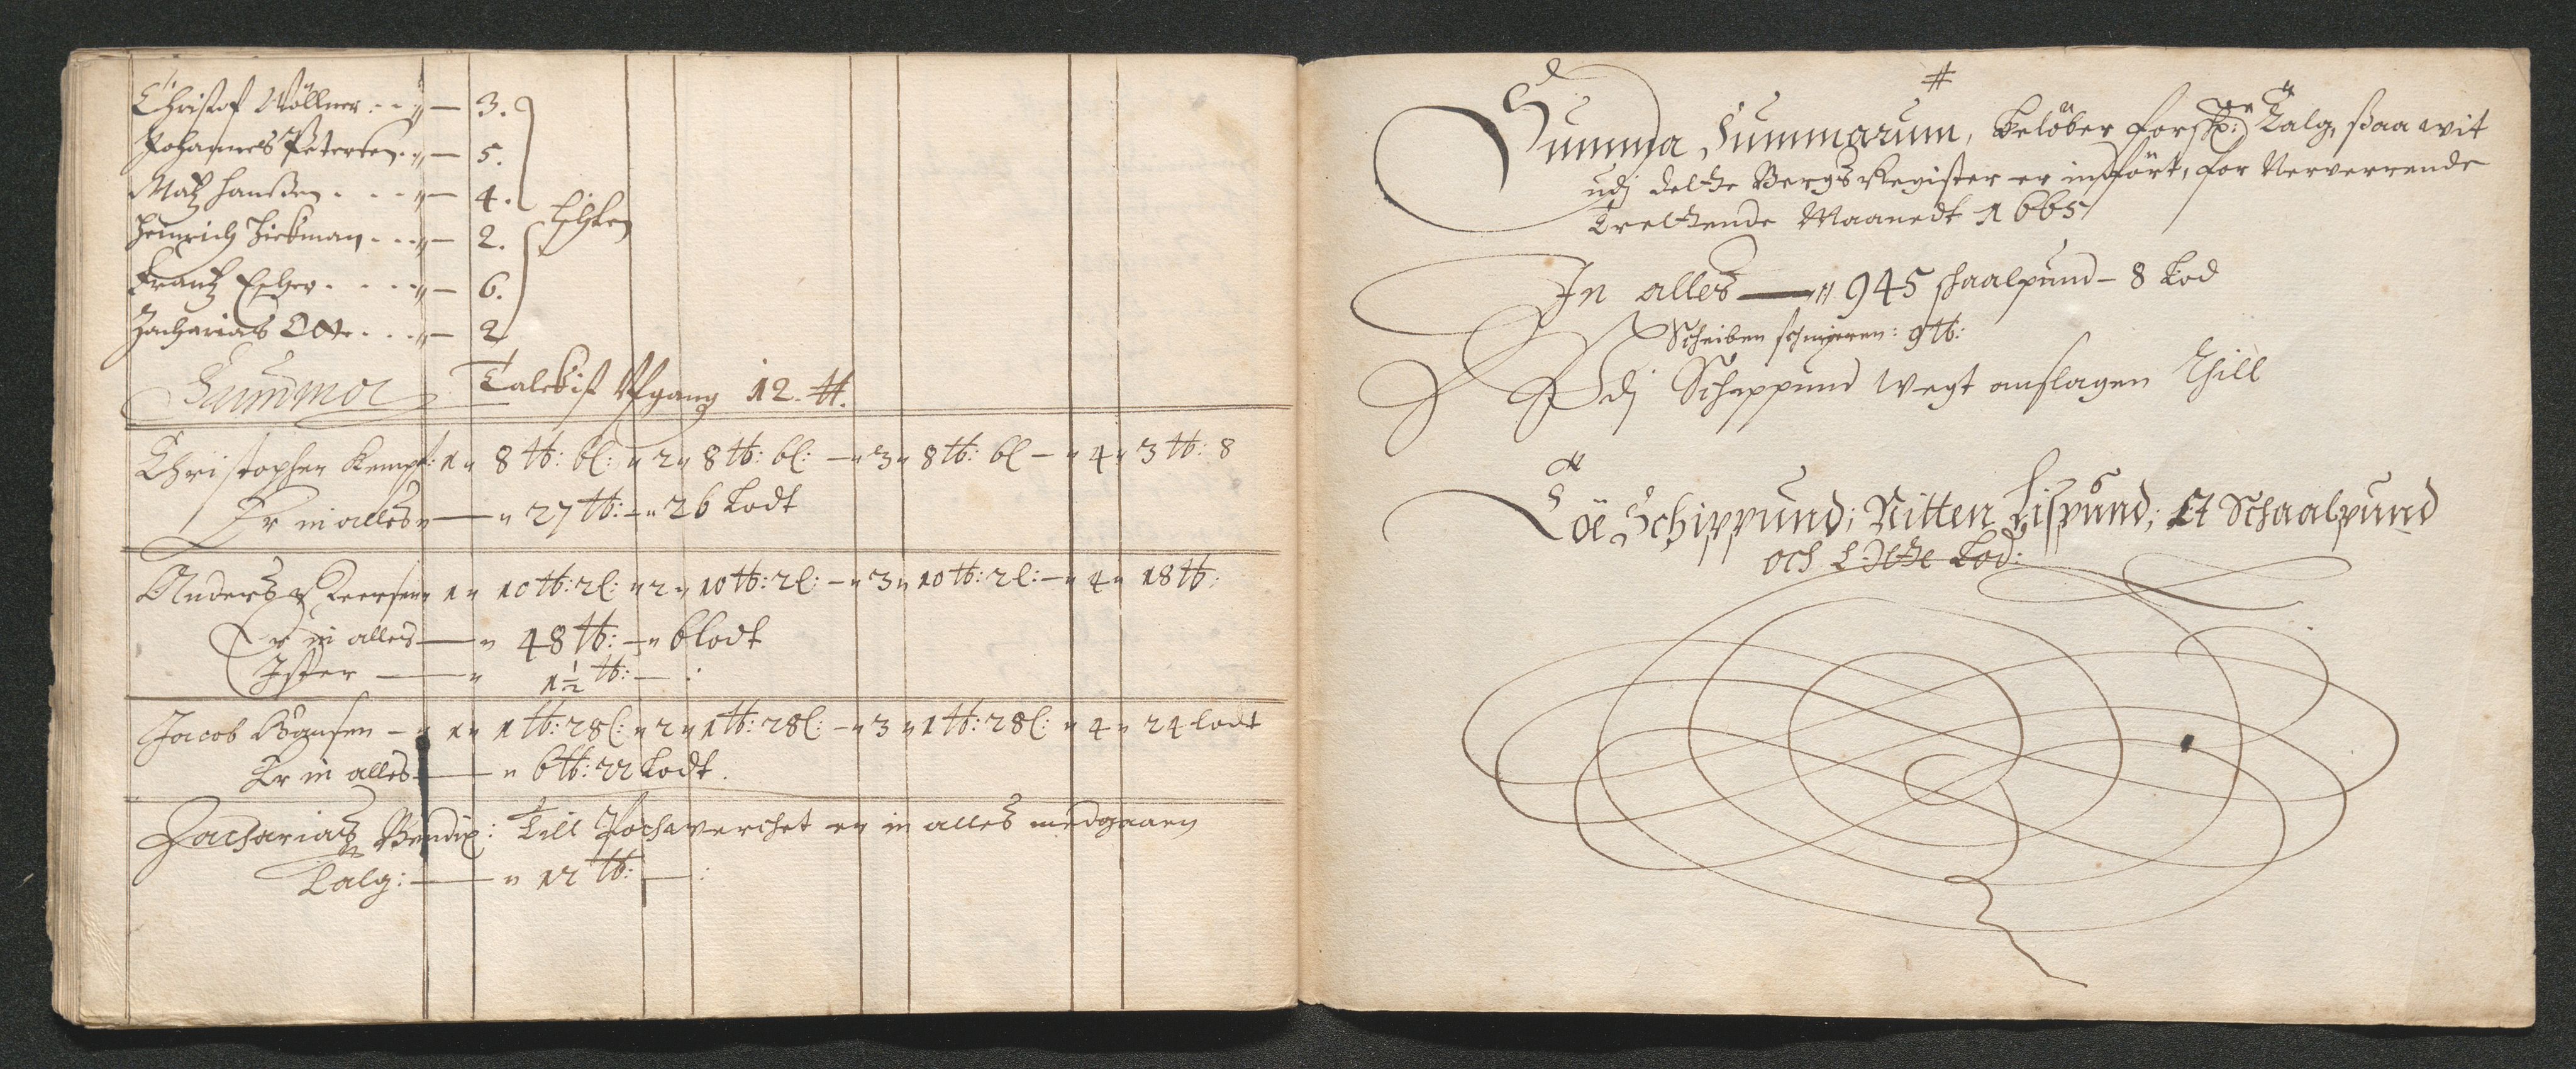 Christof Wöllner . . „ — 3.
Johannes Petersen . „ — 5.
Matz Hanßen . . . „ — 4.
Heinrich Hickman . . . „ — 2.
Frantz Escher . . . . „ — 6.
Zacharias Otte . . . „ — 2
Summa Talckist Vfgang 12. ℔.
Christopher Kempf: 1 „ 8 ℔: 6l: „ 2 „ 8 ℔: 6l: — „ 3 „ 8 ℔: 6l — „ 4 „ 3 ℔: 8
Er in alles „ — „ 27 ℔: — „ 26 Lodt
Anders Iversen „ 1 „ 10 ℔: 2l: „ 2 „ 10 ℔: 2l: — „ 3 „ 10 ℔: 2l: — „ 4 „ 18 ℔:
Er in alles — „ 48 ℔: — „ 6 lodt
Ister — „ 1½ ℔: — :
Jacob Hansen — „ 1 „ 1 ℔: 28l: „ 2 „ 1 ℔: 28l: — „ 3 „ 1 ℔: 28l: „ 4 „ 24 lodt
Er in alles — „ 6 ℔: 22 Lodt.
Zacharias Bendix: Till Pochwerchet er in alles medgaaen
Talg: — „ 12 ℔: — :
Summa Summarum, Belöber forsch: Talg, ßaa wit
udj dette Bergs Register er indfört, for Nerverrende
Trettende Maanedt 1665
In alles — „ 945 schaalpund — 8 Lod
Scheiben schmieren: 9 ℔:
Udj Schippund Wegt anslagen Thill
Toe Schippund; Nitten Lispund; Et Schaalpund
och Otte Lod: